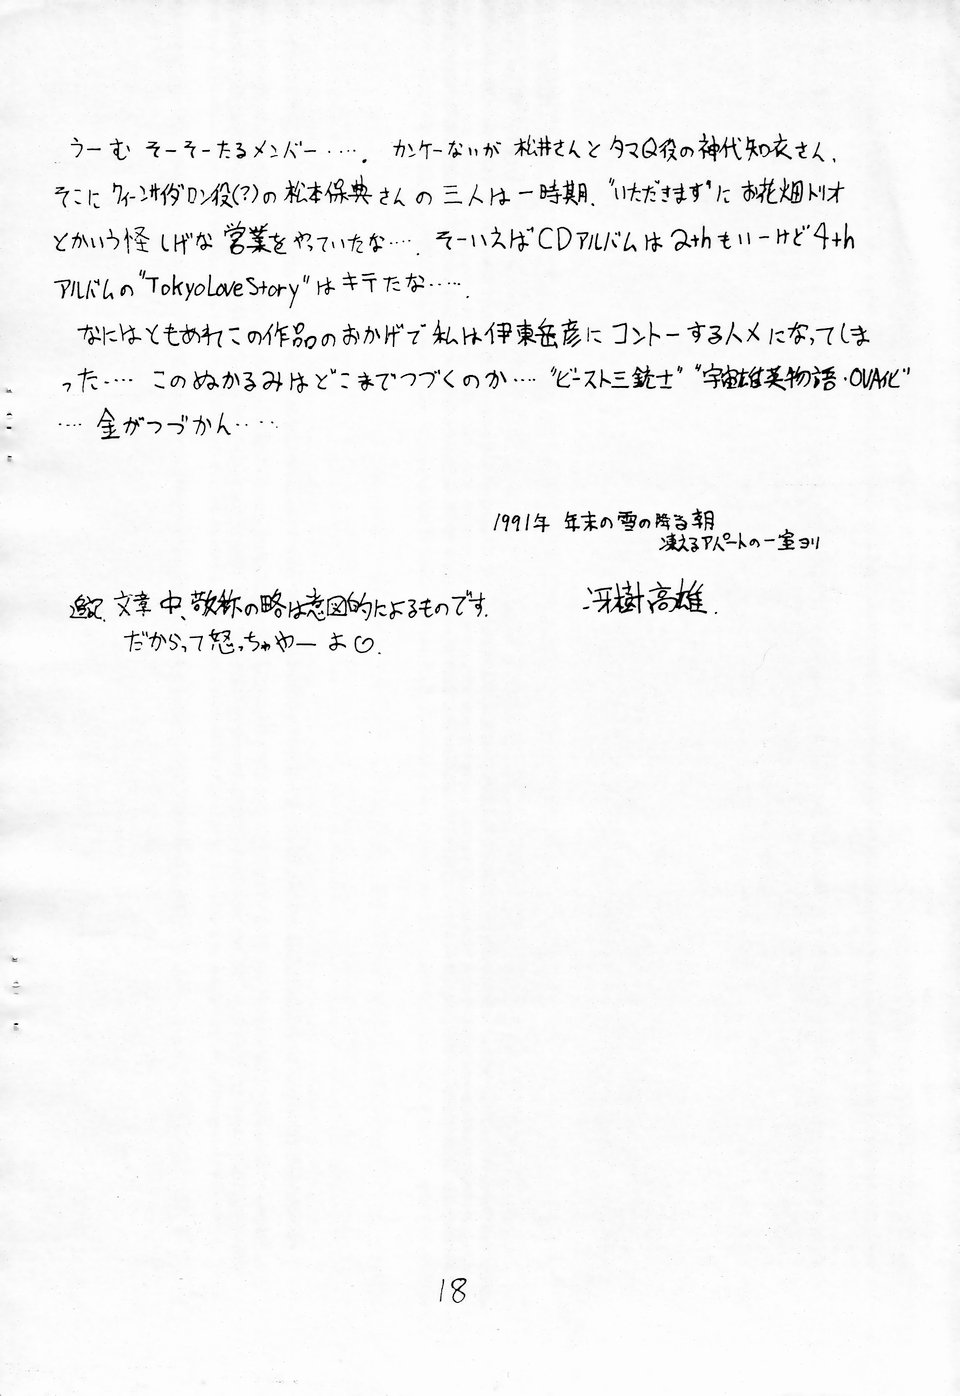 うーむ そーそーたるメンバー‥‥. カンケーないが 松井さんとタマQ役の神代知衣さん、
そこにクィーンサイダロン役(?)の松本保典さんの三人は一時期、"いただきます"にお花畑トリオ
とかいう怪しげな営業をやっていたな‥‥. そーいえばCDアルバムは2thもいーけど4th
アルバムの"TokyoLoveStory"はキテたな‥‥.
なにはともあれこの作品のおかげで私は伊東岳彦にコントーする人メになってしま
った‥‥ このぬかるみはどこまでつづくのか‥‥"ビースト三銃士""宇宙雄英物語・OVA化"
‥‥ 金がつづかん‥‥
1991年 年末の雪の降る朝
凍えるアパートの一室ヨリ
冴樹高雄.
追記. 文章中、敬称の略は意図的によるものです.
だからって怒っちゃやーよ♡.
18